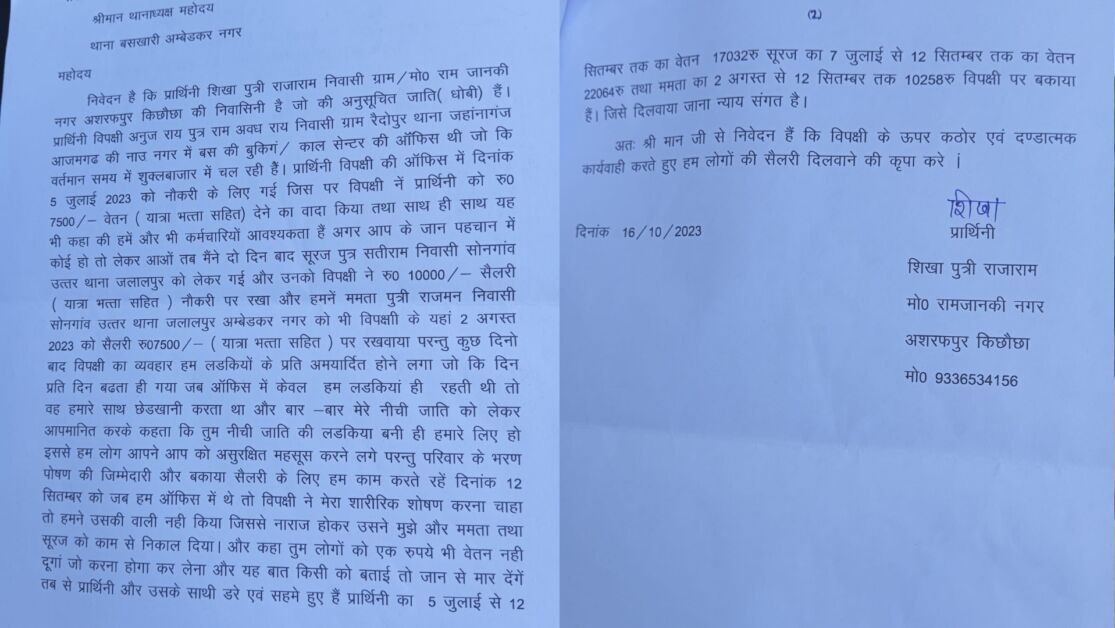 श्रीमान थानाध्यक्ष महोदय
थाना बसखारी अम्बेडकर नगर
महोदय
निवेदन है कि प्रार्थिनी शिखा पुत्री राजाराम निवासी ग्राम/मो0 राम जानकी
नगर अशरफपुर किछौछा की निवासिनी है जो की अनुसूचित जाति( धोबी) हैं।
प्रार्थिनी विपक्षी अनुज राय पुत्र राम अवध राय निवासी ग्राम रैदोपुर थाना जहांनागंज
आजमगढ की नाउ नगर में बस की बुकिगं/ काल सेन्टर की ऑफिस थी जो कि
वर्तमान समय में शुक्लबाजार में चल रही हैं। प्रार्थिनी विपक्षी की ऑफिस में दिनांक
5 जुलाई 2023 को नौकरी के लिए गई जिस पर विपक्षी नें प्रार्थिनी को रु0
7500/– वेतन ( यात्रा भत्ता सहित) देने का वादा किया तथा साथ ही साथ यह
भी कहा की हमें और भी कर्मचारियों आवश्यकता हैं अगर आप के जान पहचान में
कोई हो तो लेकर आओं तब मैंने दो दिन बाद सूरज पुत्र सतीराम निवासी सोनगांव
उत्तर थाना जलालपुर को लेकर गई और उनको विपक्षी ने रु0 10000/– सैलरी
( यात्रा भत्ता सहित ) नौकरी पर रखा और हमनें ममता पुत्री राजमन निवासी
सोनगांव उत्तर थाना जलालपुर अम्बेडकर नगर को भी विपक्षी के यहां 2 अगस्त
2023 को सैलरी रु07500/– ( यात्रा भत्ता सहित ) पर रखवाया परन्तु कुछ दिनो
बाद विपक्षी का व्यवहार हम लडकियों के प्रति अमयार्दित होने लगा जो कि दिन
प्रति दिन बढता ही गया जब ऑफिस में केवल हम लडकियां ही रहती थी तो
वह हमारे साथ छेडखानी करता था और बार –बार मेरे नीची जाति को लेकर
आपमानित करके कहता कि तुम नीची जाति की लडकिया बनी ही हमारे लिए हो
इससे हम लोग आपने आप को असुरक्षित महसूस करने लगे परन्तु परिवार के भरण
पोषण की जिम्मेदारी और बकाया सैलरी के लिए हम काम करते रहें दिनांक 12
सितम्बर को जब हम ऑफिस में थे तो विपक्षी ने मेरा शारीरिक शोषण करना चाहा
तो हमने उसकी वाली नही किया जिससे नाराज होकर उसने मुझे और ममता तथा
सूरज को काम से निकाल दिया। और कहा तुम लोगों को एक रुपये भी वेतन नही
दूगां जो करना होगा कर लेना और यह बात किसी को बताई तो जान से मार देंगें
तब से प्रार्थिनी और उसके साथी डरे एवं सहमे हुए हैं प्रार्थिनी का 5 जुलाई से 12
(2)
सितम्बर तक का वेतन 17032रु सूरज का 7 जुलाई से 12 सितम्बर तक का वेतन
22064रु तथा ममता का 2 अगस्त से 12 सितम्बर तक 10258रु विपक्षी पर बकाया
हैं। जिसे दिलवाया जाना न्याय संगत है।
अतः श्री मान जी से निवेदन हैं कि विपक्षी के ऊपर कठोर एवं दण्डात्मक
कार्यवाही करते हुए हम लोगों की सैलरी दिलवाने की कृपा करे ।
शिखा
प्रार्थिनी
दिनांक 16/10/2023
शिखा पुत्री राजाराम
मो0 रामजानकी नगर
अशरफपुर किछौछा
मो0 9336534156